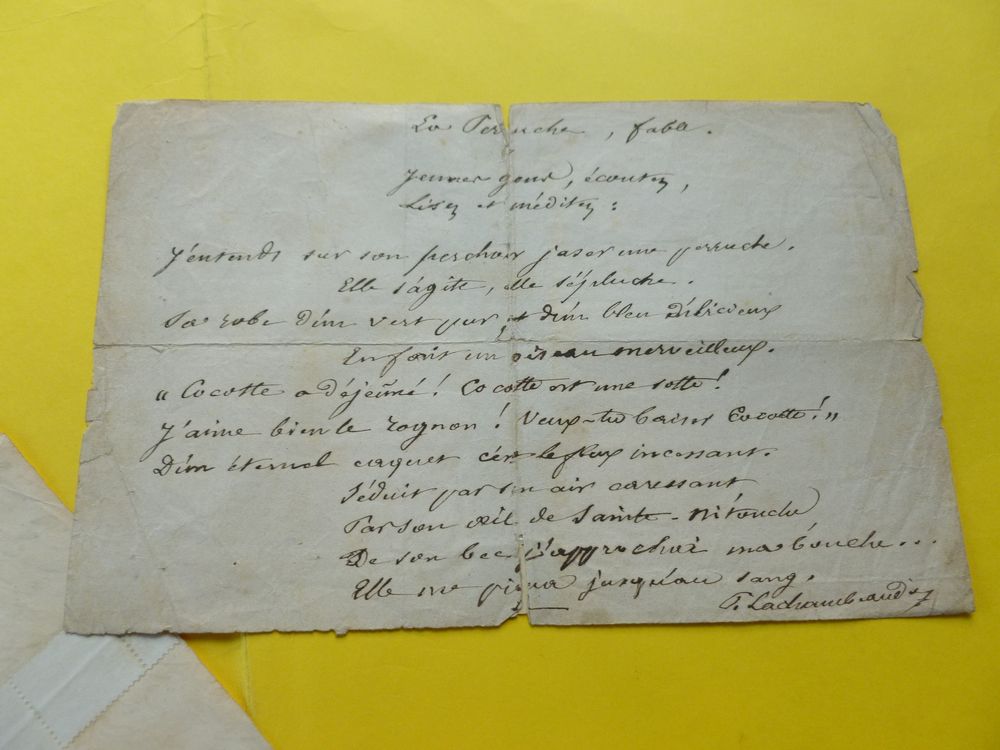 La Perruche, fable.
Jeunes gens, écoutez,
Lisez et méditez :
J'entends sur son perchoir jaser une perruche.
Elle s'agite, elle s'épluche.
Sa robe d'un vert pur et d'un bleu délicieux
En fait un oiseau merveilleux.
« Cocotte a déjeûné ! Cocotte est une sotte !
J'aime bien le rognon ! Veux-tu baiser Cocotte ! »
D'un éternel caquet c'est le flux incessant.
Séduit par son air caressant
Par son œil de Sainte-Nitouche
De son bec j'approchai ma bouche...
Elle me piqua jusqu'au sang.
P. Lachambeaudie